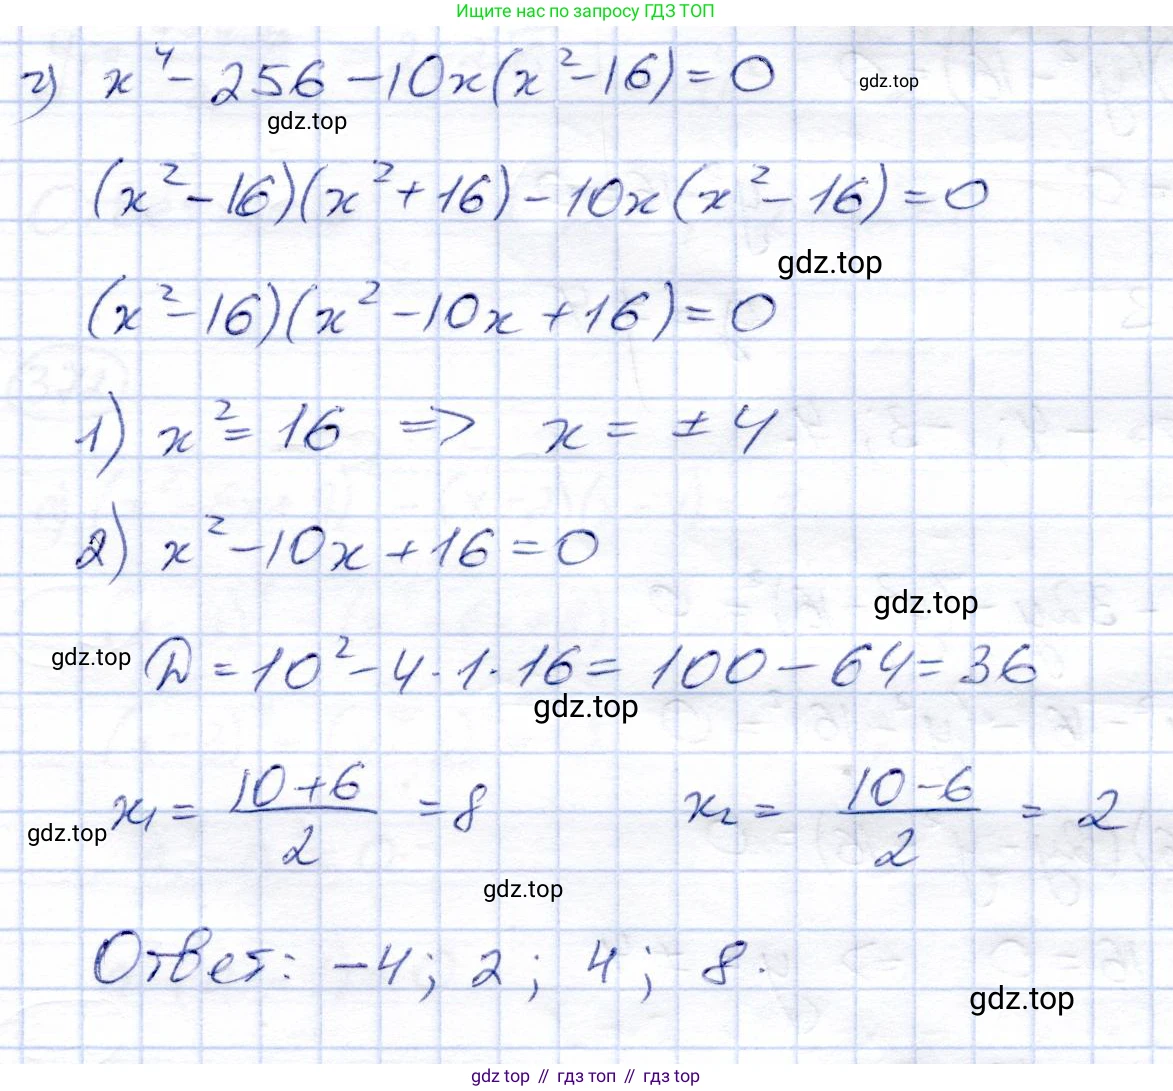 Ищите нас по запросу ГДЗ ТОП
г) x⁴ - 256 - 10x(x² - 16) = 0
gdz.top
gdz.top
(x² - 16)(x² + 16) - 10x(x² - 16) = 0
gdz.top
(x² - 16)(x² - 10x + 16) = 0
1) x² = 16 => x = ± 4
2) x² - 10x + 16 = 0
gdz.top
gdz.top
D = 10² - 4 · 1 · 16 = 100 - 64 = 36
gdz.top
x₁ = (10 + 6)/2 = 8 x₂ = (10 - 6)/2 = 2
gdz.top
gdz.top
Ответ: -4; 2; 4; 8.
gdz.top
gdz top // гдз топ // гдз top